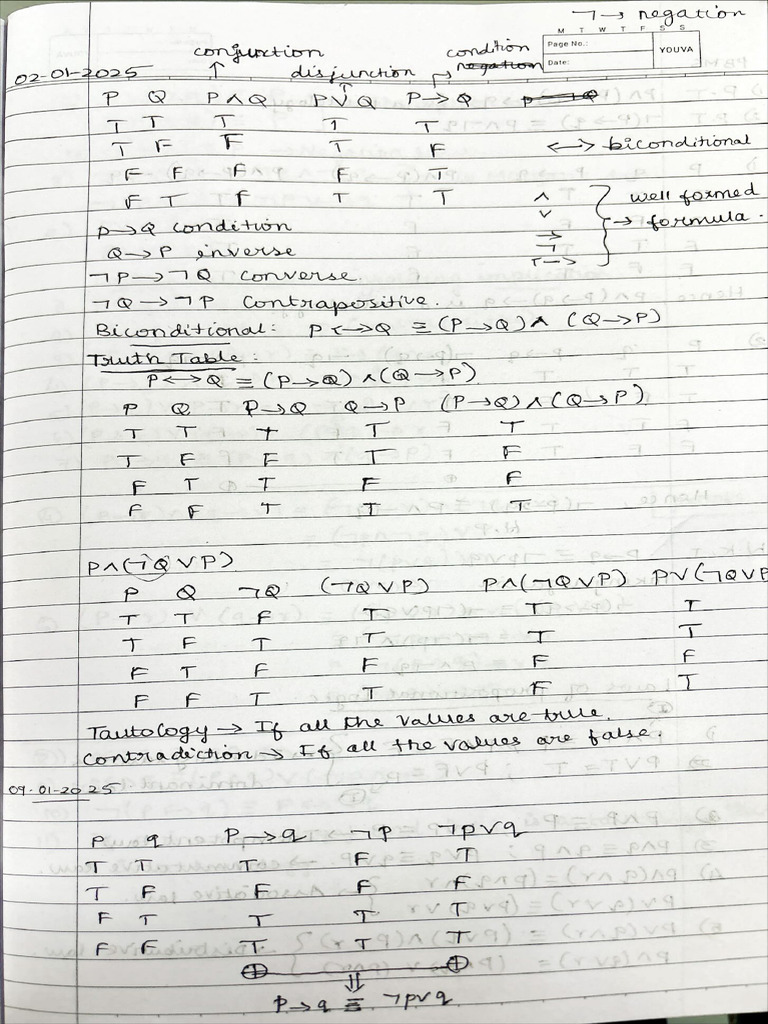 ¬ → negation
M T W T F S S
Page No.:
Date:
YOUVA
conjunction disjunction condition
negation
02-01-2025
P Q P∧Q P∨Q P→Q
T T T T T
T F F T F
F F F F T
F T F T T
←→ biconditional
∧
∨
→
¬
←→
} → well formed formula.
P→Q condition
Q→P inverse
¬P→¬Q converse.
¬Q→¬P Contrapositive.
Biconditional: P←→Q ≡ (P→Q)∧(Q→P)
Truth Table:
P←→Q ≡ (P→Q)∧(Q→P)
P Q P→Q Q→P (P→Q)∧(Q→P)
T T T T T
T F F T F
F T T F F
F F T T T
P∧(¬Q∨P)
P Q ¬Q (¬Q∨P) P∧(¬Q∨P) P∨(¬Q∨P
T T F T T T
T F T T T T
F T F F F F
F F T T F T
Tautology → If all the values are true.
Contradiction → If all the values are false.
09-01-2025
P q P→q ¬p ¬p∨q
T T T F T
T F F F F
F T T T T
F F T T T
⇓
P→q ≡ ¬p∨q